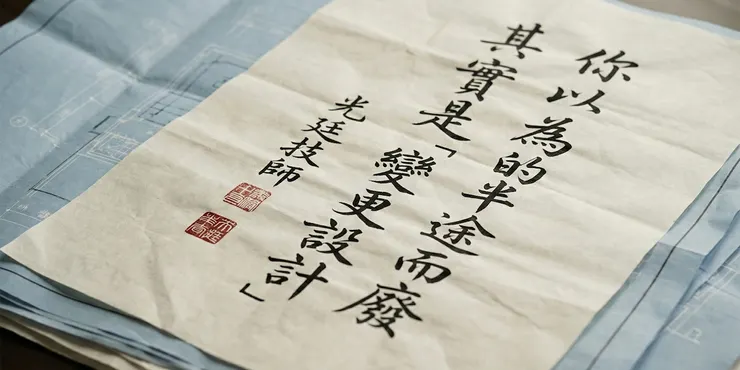 你以為的半途而廢
其實是「變更設計」
光廷技師